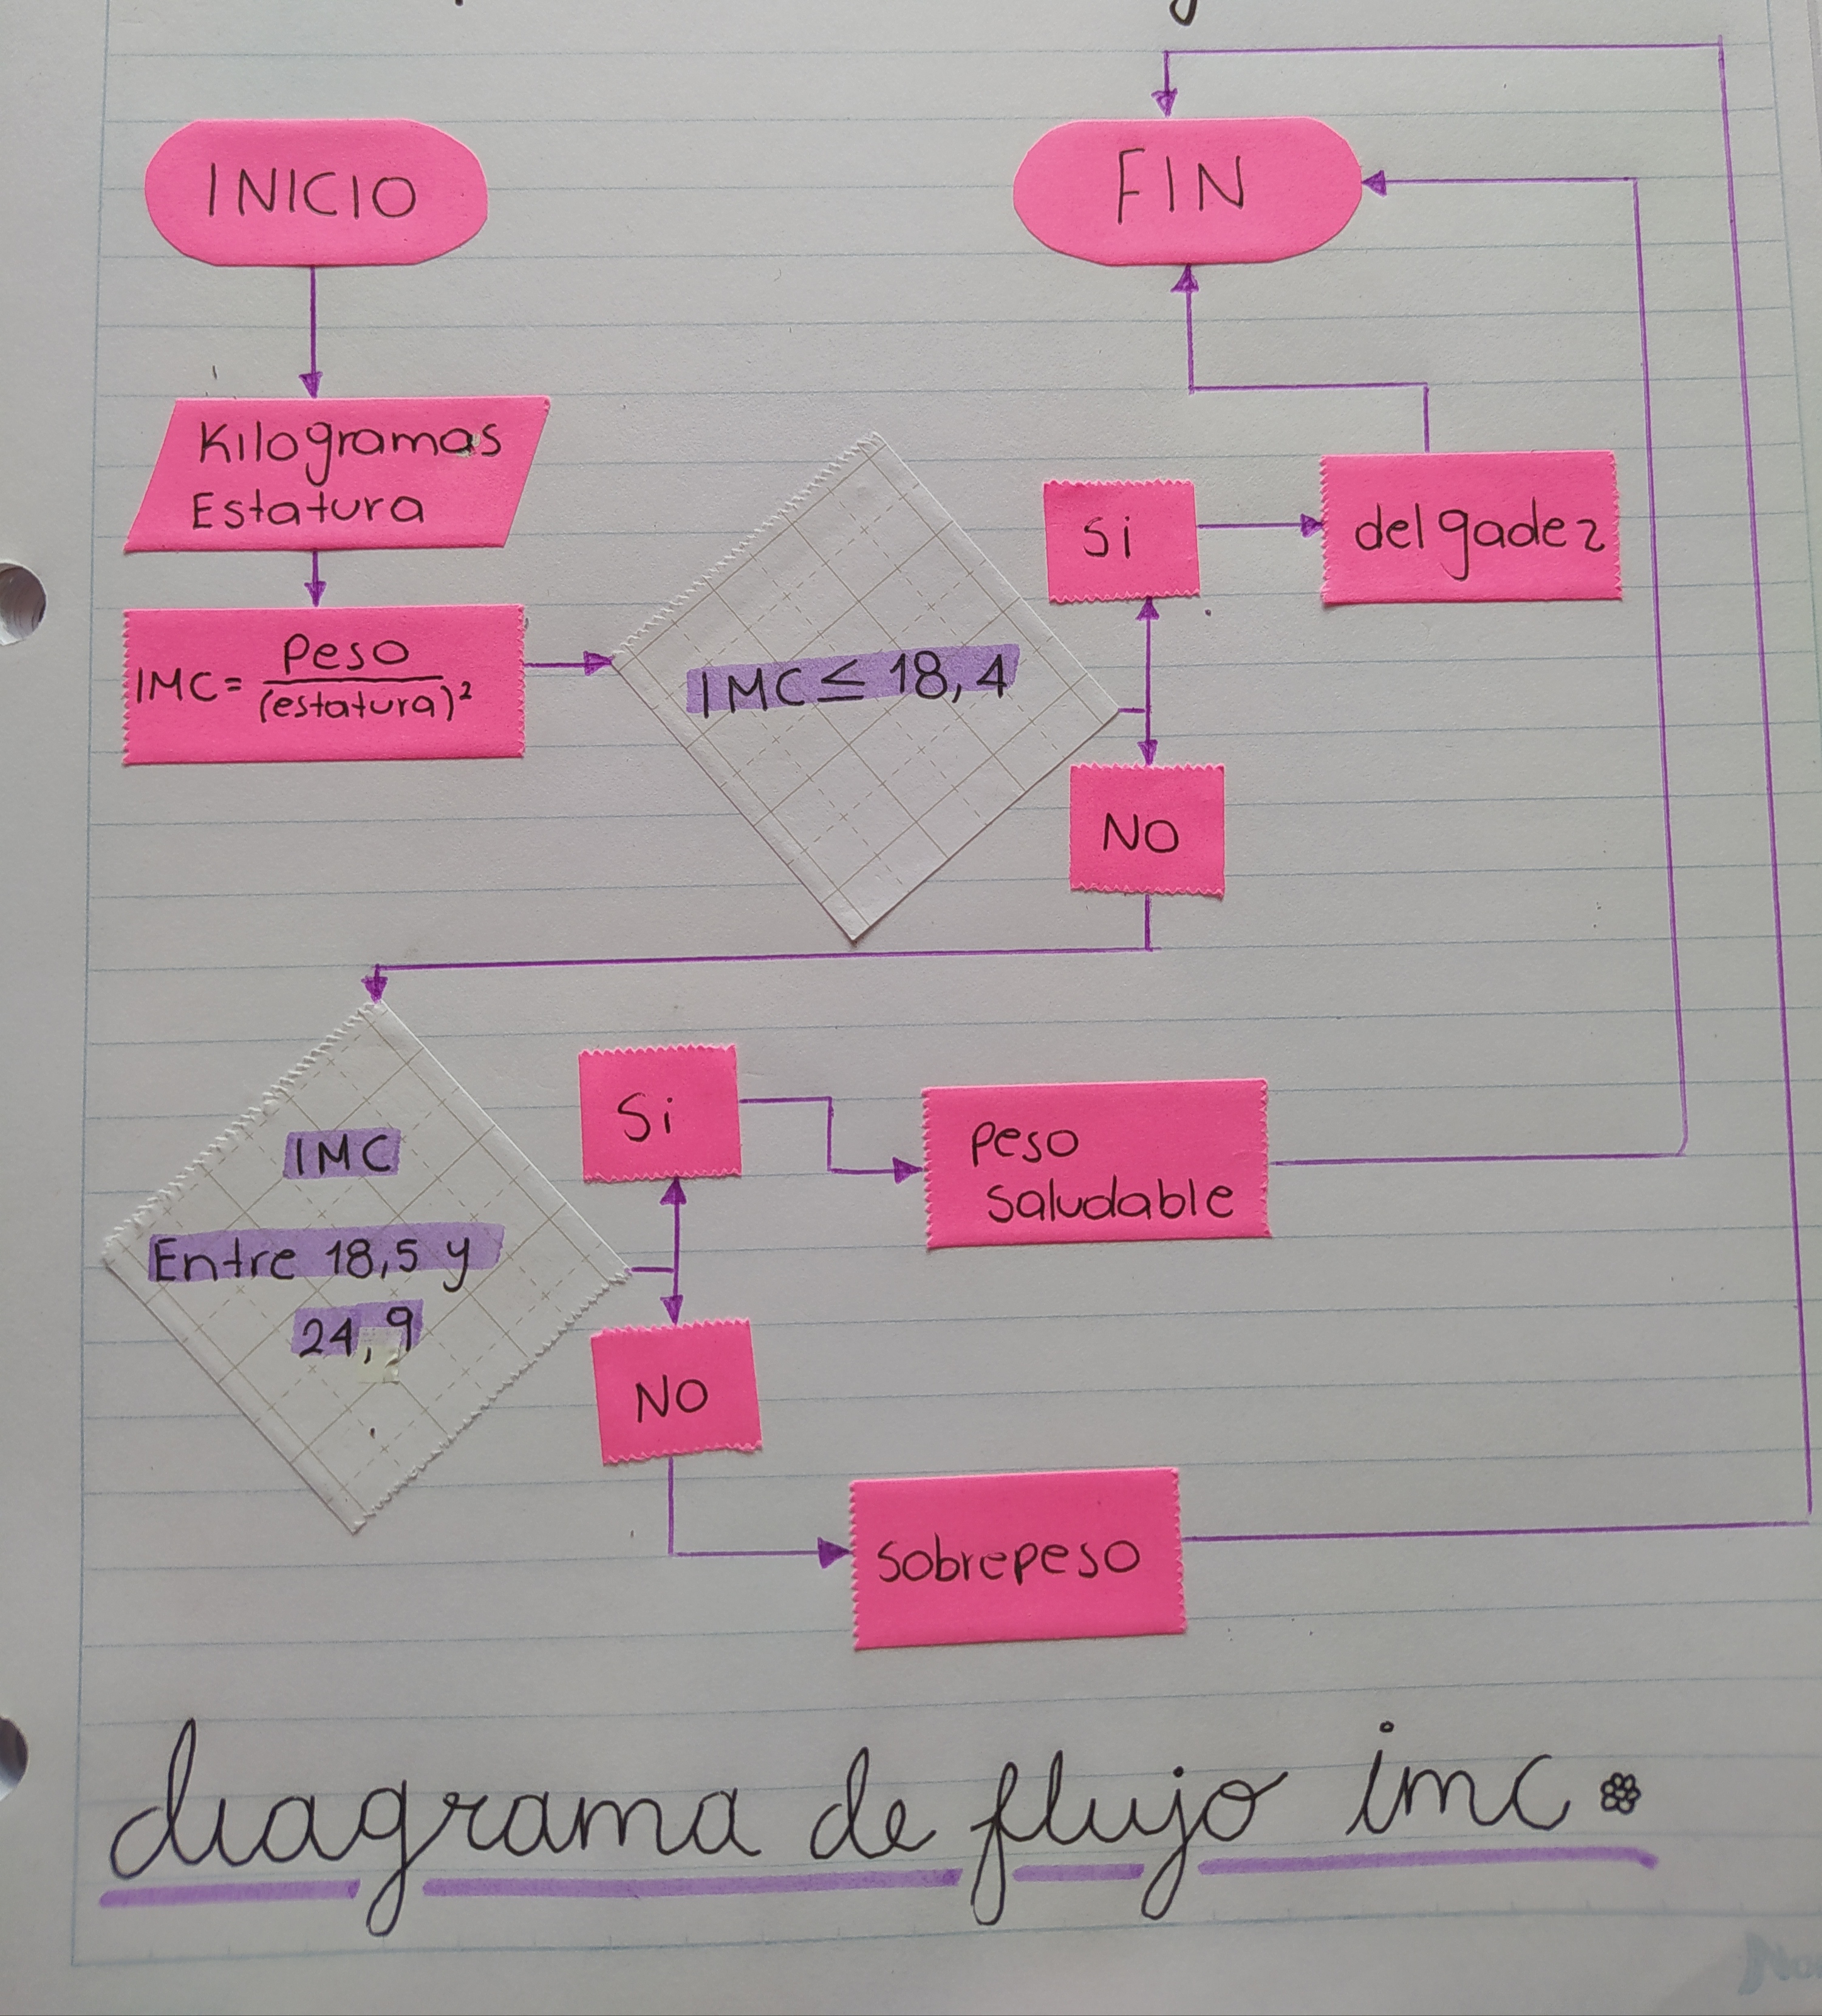 INICIO
FIN
Kilogramas
Estatura
IMC = peso / (estatura)²
IMC ≤ 18,4
Si
delgadez
NO
IMC
Entre 18,5 y
24,9
Si
peso
saludable
NO
sobrepeso
diagrama de flujo imc